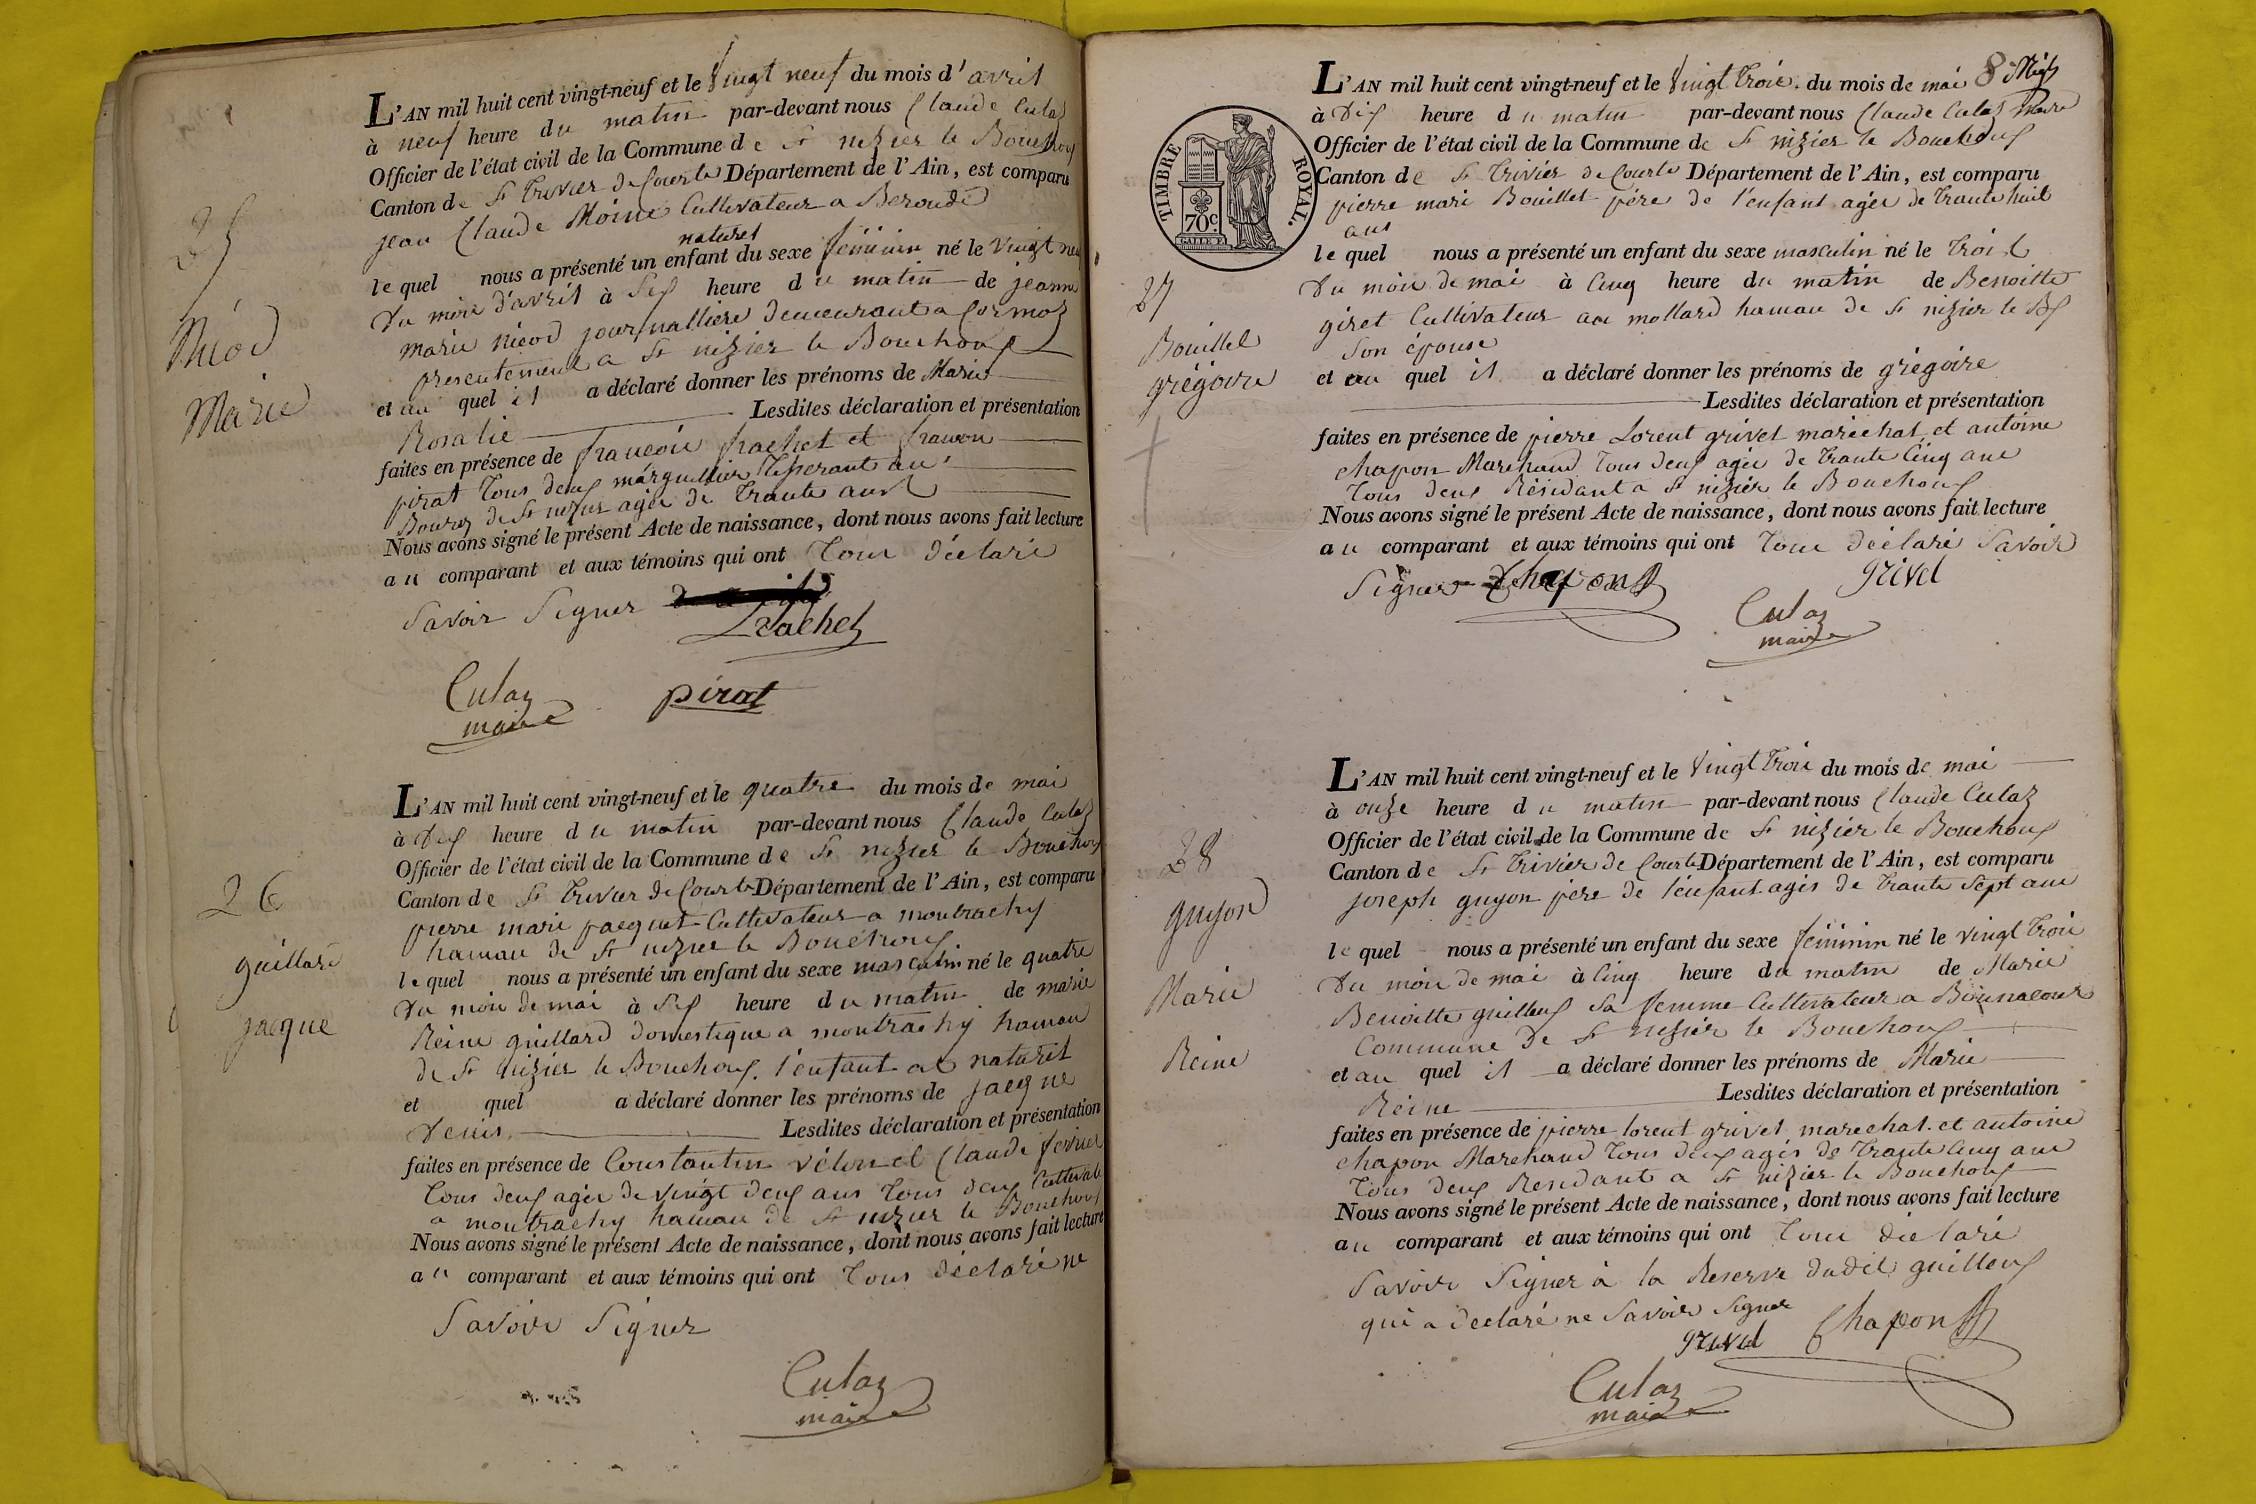 25
Niéod
Marie
L'AN mil huit cent vingt-neuf et le Vingt neuf du mois d'avril
à neuf heure du matin par-devant nous Claude Culaz
Officier de l'état civil de la Commune de St nizier le Bouchoux
Canton de St trivier de Courte Département de l'Ain, est comparu
jean Claude Moine Cultivateur a
naturel
le quel nous a présenté un enfant du sexe féminin né le vingt neuf
du mois d'avril à six heure du matin de jeanne
marie niéod journalliere demeurant a Cormoz
presentement a St nizier le Bouchoux
et au quel il a déclaré donner les prénoms de Marie
Rosalie Lesdites déclaration et présentation
faites en présence de francois frachet et francoi
pirat tous deux marguillier au
Bourg de St nizier agés de trante ans
Nous avons signé le présent Acte de naissance, dont nous avons fait lecture
au comparant et aux témoins qui ont tous déclaré
Savoir Signer
frachet
Culaz
maire
pirat
26
guillard
jacque
L'AN mil huit cent vingt-neuf et le quatre du mois de mai
à dix heure du matin par-devant nous Claude Culaz
Officier de l'état civil de la Commune de St nizier le Bouchoux
Canton de St trivier de Courte Département de l'Ain, est comparu
pierre marie jacquet Cultivateur a montrachy
hamau de St nizier le Bouchoux
le quel nous a présenté un enfant du sexe masculin né le quatre
du mois de mai à six heure du matin de marie
Reine guillard domestique a montrachy hamau
de St nizier le Bouchoux. l'enfant est naturel
et quel a déclaré donner les prénoms de jacque
denis. Lesdites déclaration et présentation
faites en présence de Constantin et Claude
tous deux agés de vingt deux ans tous deux Cultivat
a montrachy hamau de St nizier le Bouchoux
Nous avons signé le présent Acte de naissance, dont nous avons fait lecture
au comparant et aux témoins qui ont tous déclaré ne
Savoir Signer
Culaz
maire
8
TIMBRE ROYAL.
70c.
27
Bouillet
grégoire
L'AN mil huit cent vingt-neuf et le vingt trois du mois de mai
à dix heure du matin par-devant nous Claude Culaz maire
Officier de l'état civil de la Commune de St nizier le Bouchoux
Canton de St trivier de Courte Département de l'Ain, est comparu
pierre mari Bouillet pére de l'enfant agés de trante huit
ans
le quel nous a présenté un enfant du sexe masculin né le trois
du mois de mai à cinq heure du matin de Benoitte
giret Cultivateur au mollard hamau de St nizier le Bx
Son épouse
et au quel il a déclaré donner les prénoms de grégoire
Lesdites déclaration et présentation
faites en présence de pierre Lorent grivet marechat et antoine
chapon Marchand tous deux agés de trante cinq ans
tous deux Résidant a St nizier le Bouchoux
Nous avons signé le présent Acte de naissance, dont nous avons fait lecture
au comparant et aux témoins qui ont tous déclaré Savoir
Signer Chapon grivet
Culaz
maire
28
guyon
Marie
Reine
L'AN mil huit cent vingt-neuf et le vingt trois du mois de mai
à onze heure du matin par-devant nous Claude Culaz
Officier de l'état civil de la Commune de St nizier le Bouchoux
Canton de St trivier de Courte Département de l'Ain, est comparu
joseph guyon pere de l'enfant agés de trante sept ans
le quel nous a présenté un enfant du sexe féminin né le vingt trois
du mois de mai à cinq heure du matin de Marie
Benoitte guilleux sa femme Cultivateur a
Commune de St nizier le Bouchoux
et au quel il a déclaré donner les prénoms de Marie
Reine Lesdites déclaration et présentation
faites en présence de pierre lorent grivet marechat et antoine
chapon Marchand tous deux agés de trante cinq ans
tous deux Residants a St nizier le Bouchoux
Nous avons signé le présent Acte de naissance, dont nous avons fait lecture
au comparant et aux témoins qui ont tous déclaré
Savoir Signer à la Reserve dudit guilleux
qui a declaré ne Savoir Signer
grivet Chapon
Culaz
maire